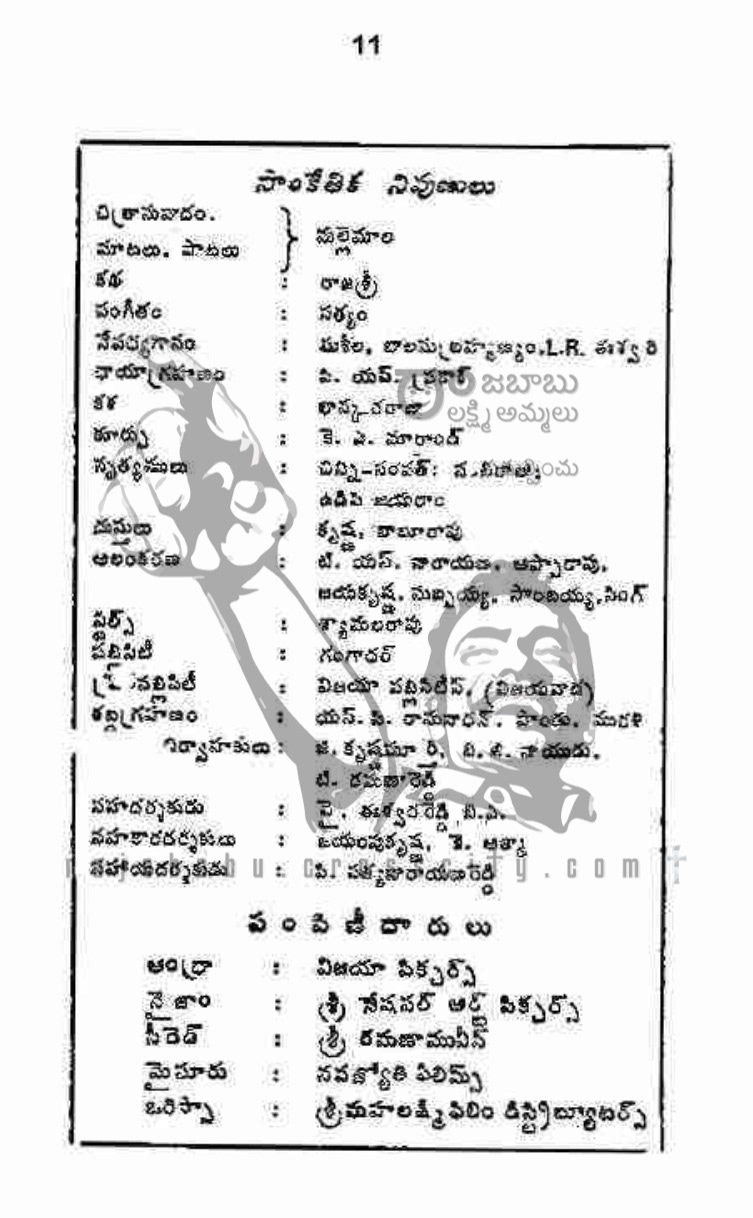 11
సాంకేతిక నిపుణులు
చిత్రానువాదం.
మాటలు. పాటలు } మల్లెమాల
కథ : రాజశ్రీ
సంగీతం : సత్యం
నేపథ్యగానం : సుశీల, బాలసుబ్రహ్మణ్యం.L.R. ఈశ్వరి
ఛాయాగ్రహణం : పి. యస్. ప్రకాశ్
రాజబాబు
కళ : భాస్కరరాజు
లక్ష్మి అమ్మలు
కూర్పు : కె. ఎ. మార్తాండ్
నృత్యములు : చిన్ని-సంపత్:
ఉడిపి జయరాం
దుస్తులు : కృష్ణ, బాబూరావు
అలంకరణ : టి. యస్. నారాయణ. అప్పారావు.
జయకృష్ణ. సుబ్బయ్య. సాంబయ్య.సింగ్
స్టిల్స్ : శ్యామలరావు
పబ్లిసిటీ : గంగాధర్
పబ్లిసిటీ : విజయా పబ్లిసిటీస్. (విజయవాడ)
శబ్దగ్రహణం : యస్. పి. రామనాథన్. పాండు. మురళి
నిర్వాహకులు : జి. కృష్ణమూర్తి. వి. నాయుడు.
టి. రమణారెడ్డి
సహదర్శకుడు : వై. ఈశ్వరరెడ్డి బి.ఏ.
సహకారదర్శకులు : జయంపుకృష్ణ, కె. ఆత్మా
సహాయదర్శకుడు : పి. సత్యనారాయణరెడ్డి
rajababucrosscity.com
పంపిణీదారులు
ఆంధ్రా : విజయా పిక్చర్స్
నైజాం : శ్రీ నేషనల్ ఆర్ట్ పిక్చర్స్
సీడెడ్ : శ్రీ రమణామువీస్
మైసూరు : నవజ్యోతి ఫిలిమ్స్
ఒరిస్సా : శ్రీమహలక్ష్మీ ఫిలిం డిస్ట్రిబ్యూటర్స్